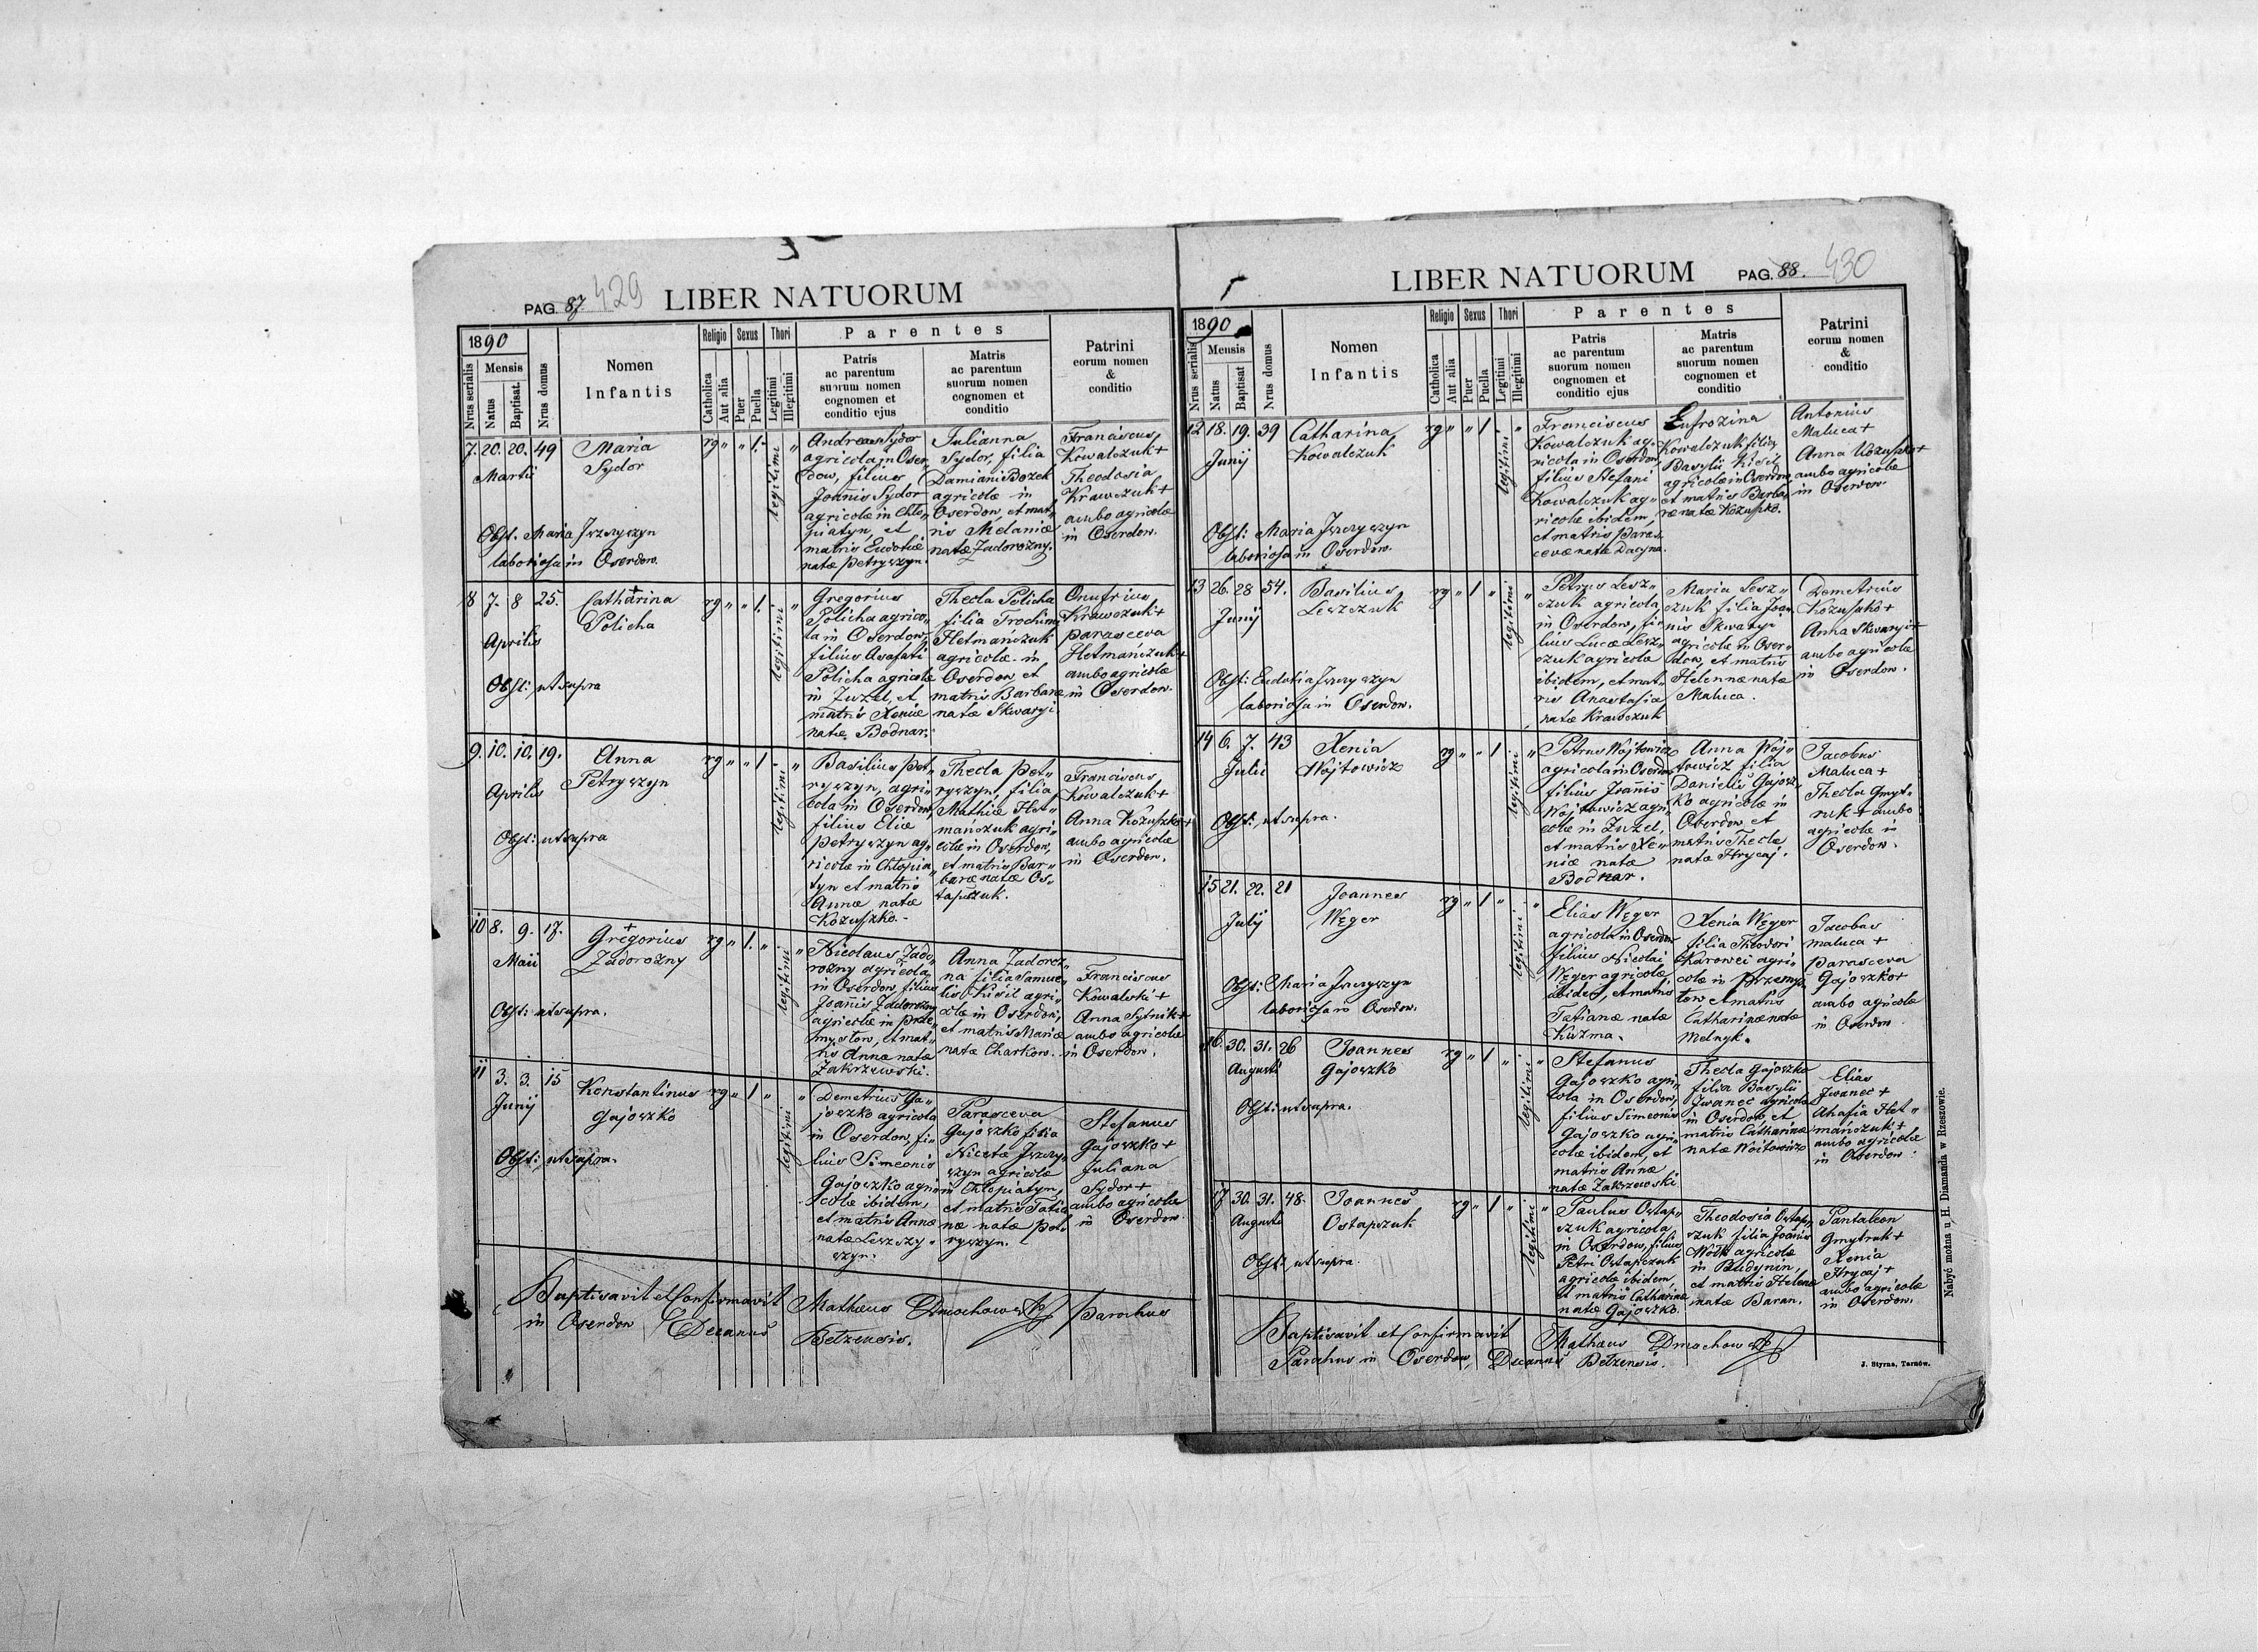 PAG. 87. 429 LIBER NATUORUM
1890
Nrus serialis
Mensis
Natus
Baptisat.
Nrus domus
Nomen
Infantis
Religio
Catholica
Aut alia
Sexus
Puer
Puella
Thori
Legitimi
Illegitimi
Parentes
Patris
ac parentum
suorum nomen
cognomen et
conditio ejus
Matris
ac parentum
suorum nomen
cognomen et
conditio
Patrini
eorum nomen
&
conditio
7. 20. 20. 49
Martii
Maria
Sydor
rg " " 1. legitimi "
Andreas Sydor
agricola in Oser
dow, filius
Joannis Sydor
agricolæ in Chło„
piatyn, et
matris Eudotiæ
natæ Petryszyn.
Julianna
Sydor, filia
Damiani Bozek
agricolæ in
Oserdow, et mat„
ris Melaniæ
natæ Zadorozny.
Franciscus
Kowalczuk +
Theodosia
Krawczuk +
ambo agricolæ
in Oserdow.
Obst. Maria
laboriosa in Oserdow.
8 7. 8 25.
Aprilis
+
Catharina
Policha
rg " " 1. legitimi "
Gregorius
Policha agrico„
la in Oserdow,
filius Asafati
Policha agricolæ
in Zuzel, et
matris Xeniæ
natæ Bodnar.
Thecla Policha
filia Trochimi
Hetmańczuk
agricolæ in
Oserdow et
matris Barbaræ
natæ Skwaryi.
Onufrius
Krawczuk +
Parasceva
Hetmańczuk +
ambo agricolæ
in Oserdow.
Obst: ut supra
9. 10. 10. 19.
Aprilis
Anna
Petryszyn
rg " " 1 legitimi "
Basilius Pet„
ryszyn, agri„
cola in Oserdow,
filius Eliæ
Petryszyn ag„
ricolæ in Chłopia„
tyn et matris
Annæ natæ
Kozuszko.
Thecla Pet„
ryszyn, filia
Mathiæ Het„
mańczuk agri„
colæ in Oserdow,
et matris Bar„
baræ natæ Os„
tapczuk.
Franciscus
Kowalczuk +
Anna Kozuszko +
ambo agricolæ
in Oserdow.
Obst: ut supra
10 8. 9. 17.
Maii
+
Gregorius
Zadorozny
rg " 1. " legitimi "
Nicolaus Zado„
rozny agricola
in Oserdow, filius
Joannis Zadorozny
agricolæ in Prze„
mysłow, et mat„
ris Annæ natæ
Zakrzewski.
Anna Zadoroz„
na filia Samue„
lis Kisil agri„
colæ in Oserdow,
et matris Mariæ
natæ Charkow.
Franciscus
Kowalski +
Anna Sytnik +
ambo agricolæ
in Oserdow.
Obst: ut supra.
11 3. 3. 15
Junij
Konstantinus
Gajoszko
rg " 1 " legitimi "
Demetrius Ga„
joszko agricola
in Oserdow, fi„
lius Simeonis
Gajoszko agri„
colæ ibidem,
et matris Annæ
natæ Leszczy„
szyn.
Parasceva
Gajoszko filia
Nicetæ
szyn agricolæ
in Chłopiatyn,
et matris Tatia„
næ natæ Pet„
ryszyn.
Stefanus
Gajoszko +
Juliana
Sydor +
ambo agricolæ
in Oserdow.
Obst: ut supra.
Baptisavit et Confirmavit Mathæus Dmochowski Parochus
in Oserdow Decanus Bełzensis.
LIBER NATUORUM PAG. 88. 430
1890
Nrus serialis
Mensis
Natus
Baptisat
Nrus domus
Nomen
Infantis
Religio
Catholica
Aut alia
Sexus
Puer
Puella
Thori
Legitimi
Illegitimi
Parentes
Patris
ac parentum
suorum nomen
cognomen et
conditio ejus
Matris
ac parentum
suorum nomen
cognomen et
conditio
Patrini
eorum nomen
&
conditio
12 18. 19. 39
Junij
Catharina
Kowalczuk
rg " " 1 legitimi "
Franciscus
Kowalczuk ag„
ricola in Oserdow,
filius Stefani
Kowalczuk ag„
ricolæ ibidem,
et matris Paras„
cevæ natæ Dacyna.
Eufrozina
Kowalczuk filia
Basylii Kisil
agricolæ in Oserdow,
et matris Barba„
ræ natæ Kozuszko.
Antonius
Maluca +
Anna Kozuszko +
ambo agricolæ
in Oserdow.
Obst: Maria
laboriosa in Oserdow.
13 26. 28 54.
Junij
Basilius
Leszczuk
rg " 1 " legitimi "
Petrus Lesz„
czuk agricola
in Oserdow, fi„
lius Lucæ Lesz„
czuk agricolæ
ibidem, et mat„
ris Anastasiæ
natæ Krawczuk
Maria Lesz„
czuk filia Joan„
nis Skwaryi
agricolæ in Oser„
dow, et matris
Helennæ natæ
Maluca.
Demetrius
Kozuszko +
Anna Skwaryi +
ambo agricolæ
in Oserdow.
Obst: Eudotia
laboriosa in Oserdow.
14 6. 7. 43
Julii
Xenia
Wojtowicz
rg " " 1 legitimi "
Petrus Wojtowicz
agricola in Oserdow
filius Joannis
Wojtowicz agri„
colæ in Zuzel,
et matris Xe„
niæ natæ
Bodnar.
Anna Woj„
towicz filia
Danielis Gajosz„
ko agricolæ in
Oserdow et
matris Theclæ
natæ Hrycaj.
Jacobus
Maluca +
Thecla Gmyt„
ruk + ambo
agricolæ in
Oserdow.
Obst: ut supra.
15 21. 22. 21
Julij
Joannes
Węger
rg " 1 " legitimi "
Elias Węger
agricola in Oserdow
filius Nicolai
Węger agricolæ
ibidem, et matris
Tatianæ natæ
Kuzma.
Xenia Węger
filia Theodori
Karowei agri„
colæ in Przemys„
łow, et matris
Catharinæ natæ
Melnyk.
Jacobus
Maluca +
Parasceva
Gajoszko +
ambo agricolæ
in Oserdow
Obst: Maria
laboriosa in Oserdow.
16. 30. 31. 26
Augusti
Joannes
Gajoszko
rg " 1 " legitimi "
Stefanus
Gajoszko agri„
cola in Oserdow,
filius Simeonis
Gajoszko agri„
colæ ibidem, et
matris Annæ
natæ Zakrzewski
Thecla Gajoszko
filia Basylii
Iwanec agricolæ
in Oserdow et
matris Catharinæ
natæ Woitowicz
Elias
Iwanec +
Ahafia Het„
mańczuk +
ambo agricolæ
in Oserdow.
Obst: ut supra.
17 30. 31. 48.
Augusti
Joannes
Ostapczuk
rg " 1 " legitimi "
Paulus Ostap„
czuk agricola
in Oserdow, filius
Petri Ostapczuk
agricolæ ibidem,
et matris Catharinæ
natæ Gajoszko.
Theodosia Ostap„
czuk filia Joannis
Wołk agricolæ
in Budynin,
et matris Helenæ
natæ Baran.
Pantaleon
Gmytruk +
Xenia
Hrycaj +
ambo agricolæ
in Oserdow.
Obst: ut supra.
Baptisavit et Confirmavit Mathæus Dmochowski
Parochus in Oserdow, Decanus Bełzensis.
Nabyć można u H. Diamanda w Rzeszowie.
J. Styrna, Tarnów.